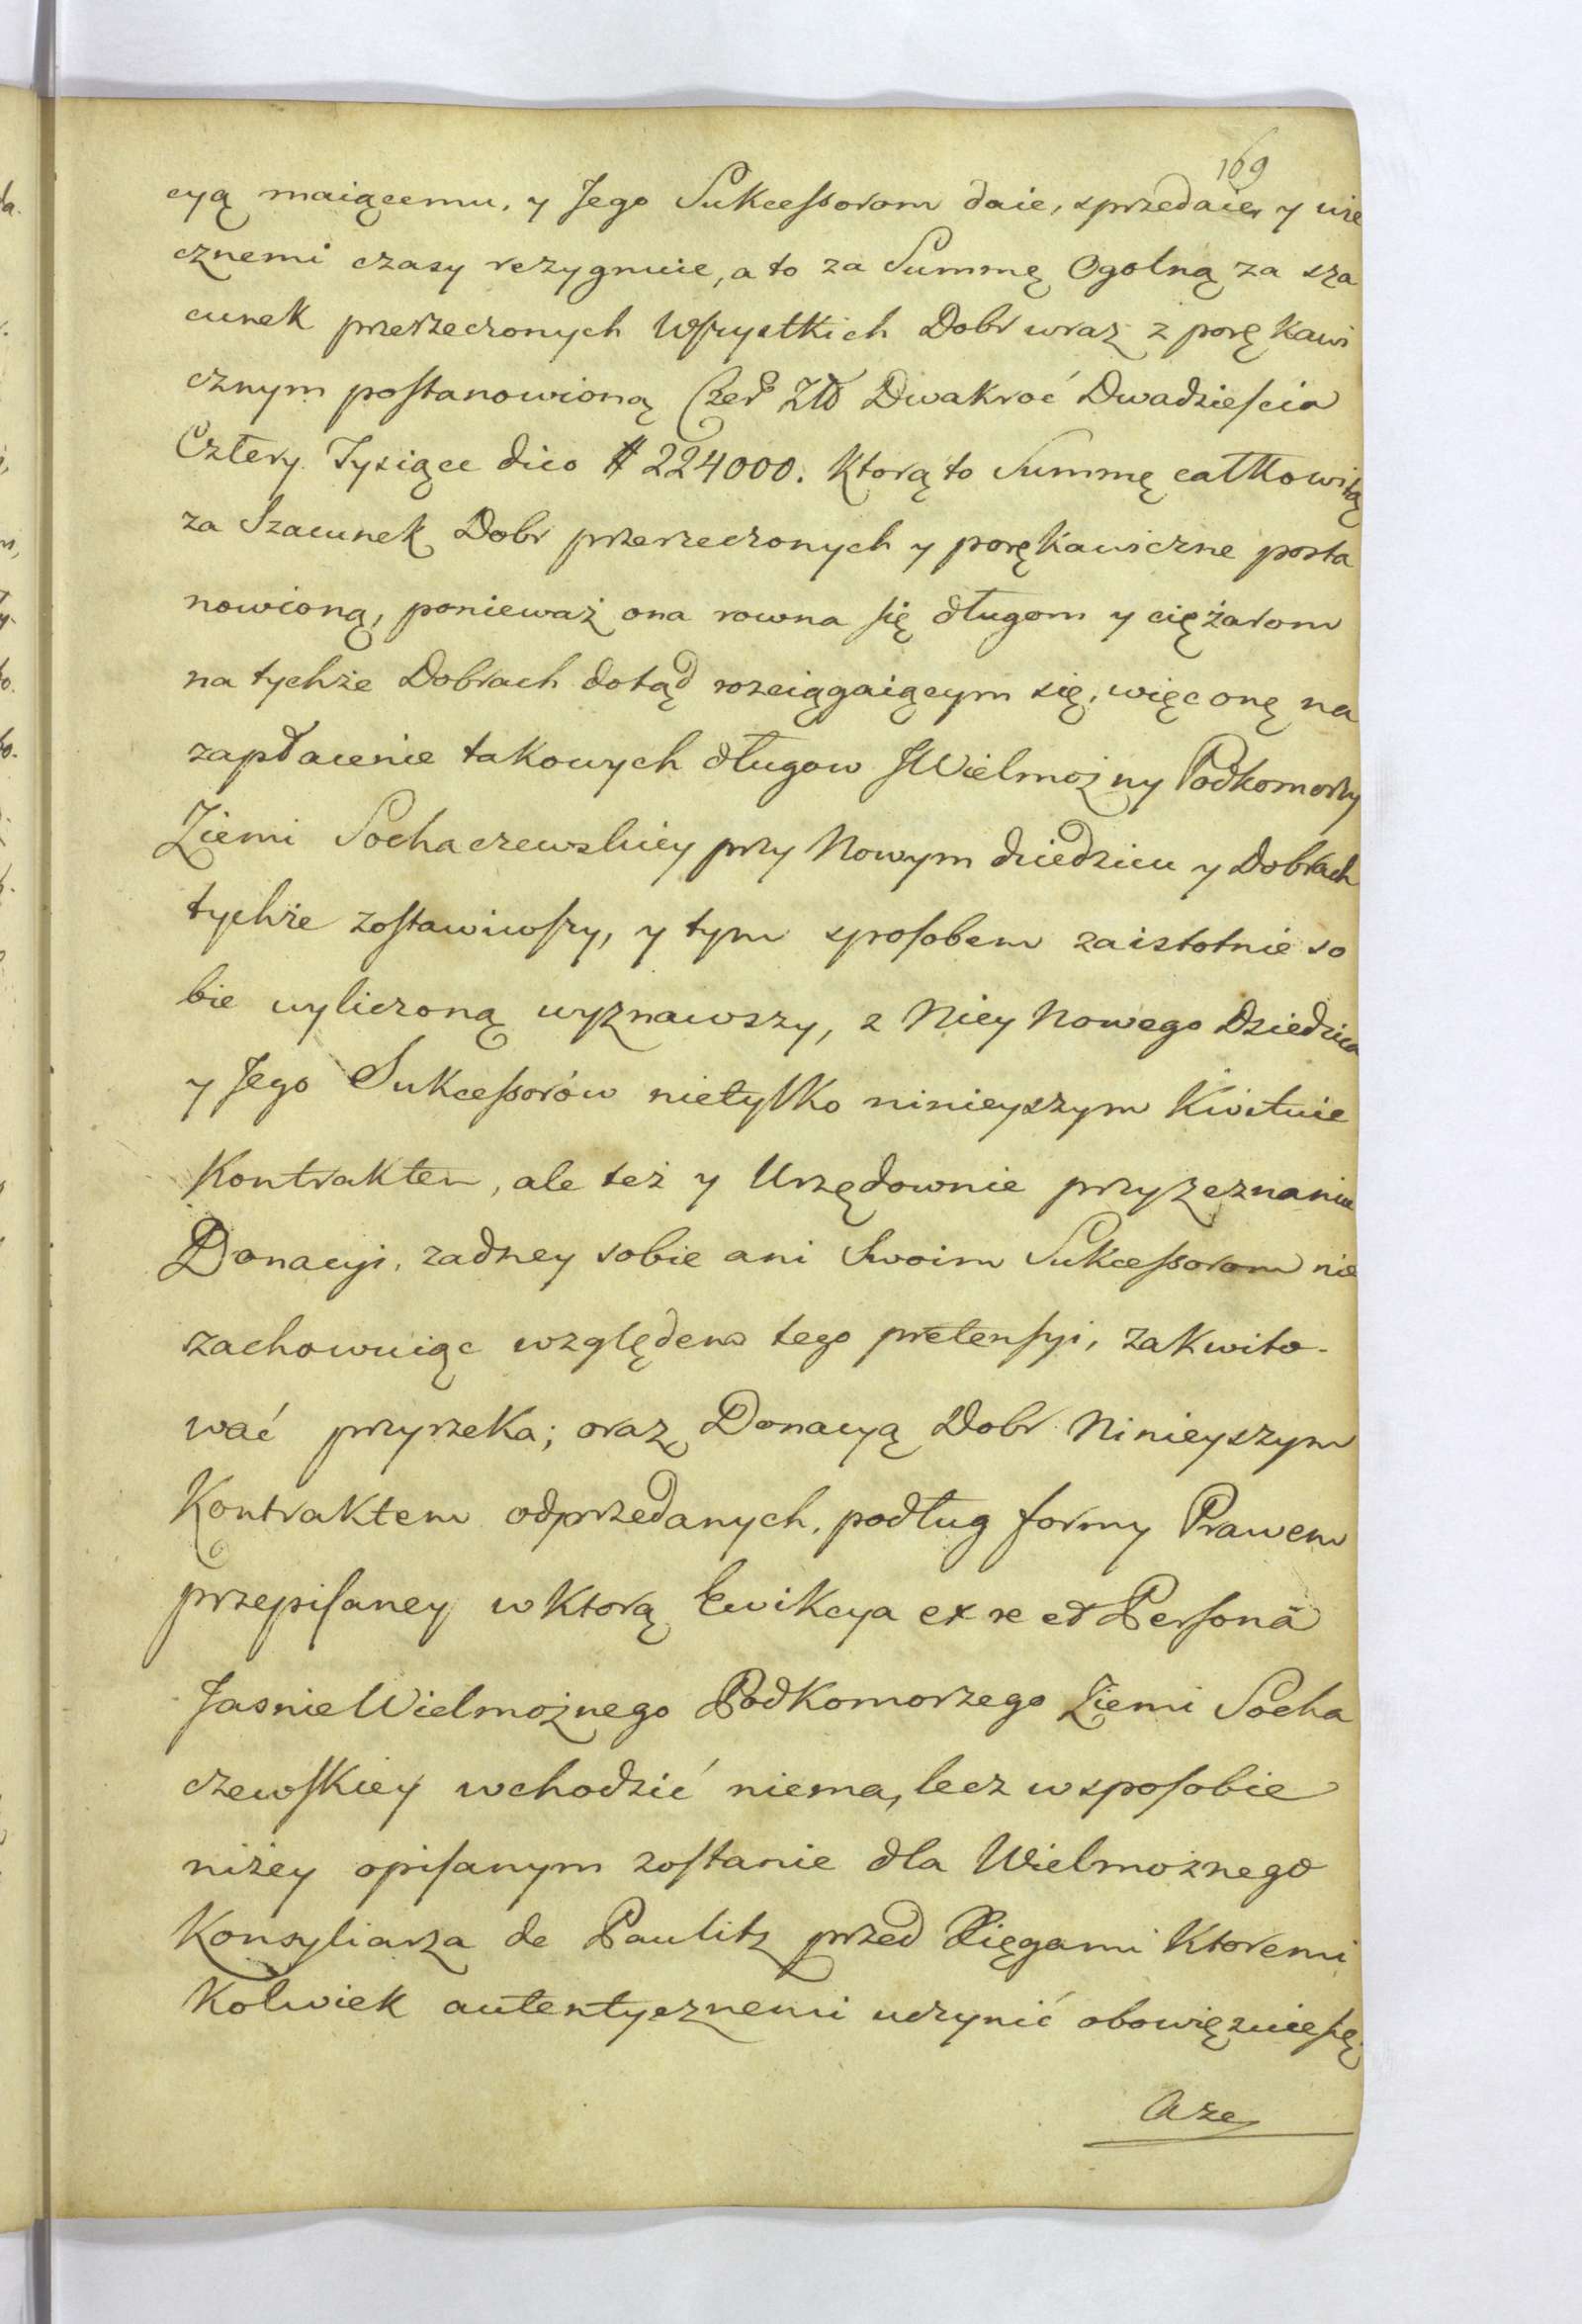 169
cyą maiącemu, y Jego Sukcessorom daie, sprzedaie, y wie
cznemi czasy rezygnuie, a to za Summę Ogolną za sza
cunek przerzeczonych Wszystkich Dobr wraz z porękawi
cznym postanowioną Czer Zło Dwakroć Dwadziescia
Cztery Tysiące dico # 224000. Ktorą to Summę całkowitą
za Szacunek Dobr przerzeczonych y porękawiczne posta
nowioną, ponieważ ona rowna się długom y ciężarom
na tychże Dobrach dotąd rozciągaiącym się, więc onę na
zapłacenie takowych długow JWielmożny Podkomorzy
Ziemi Sochaczewskiey przy Nowym dziedzicu y Dobrach
tychże zostawiwszy, y tym sposobem zaistotnie so
bie wyliczoną wyznawszy, z Niey Nowego Dziedzica
y Jego Sukcessorów nietylko ninieyszym Kwituie
Kontraktem, ale też y Urzędownie przyzeznaniu
Donacyi, zadney sobie ani Swoim Sukcessorom nie
zachowuiąc względem tego pretensyi, zakwito-
wać przyrzeka; oraz Donacyą Dobr Ninieyszym
Kontraktem odprzedanych, podług formy Prawem
przepisaney w Ktorą Ewikcya ex re et Personã
Jasnie Wielmożnego Podkomorzego Ziemi Socha
czewskiey wchodzić niema, lecz w sposobie
niżey opisanym zostanie dla Wielmoznego
Konsyliarza de Paulitz przed Xięgami Ktoremi
Kolwiek autentycznemi uczynić obowięzuie się,
Aze